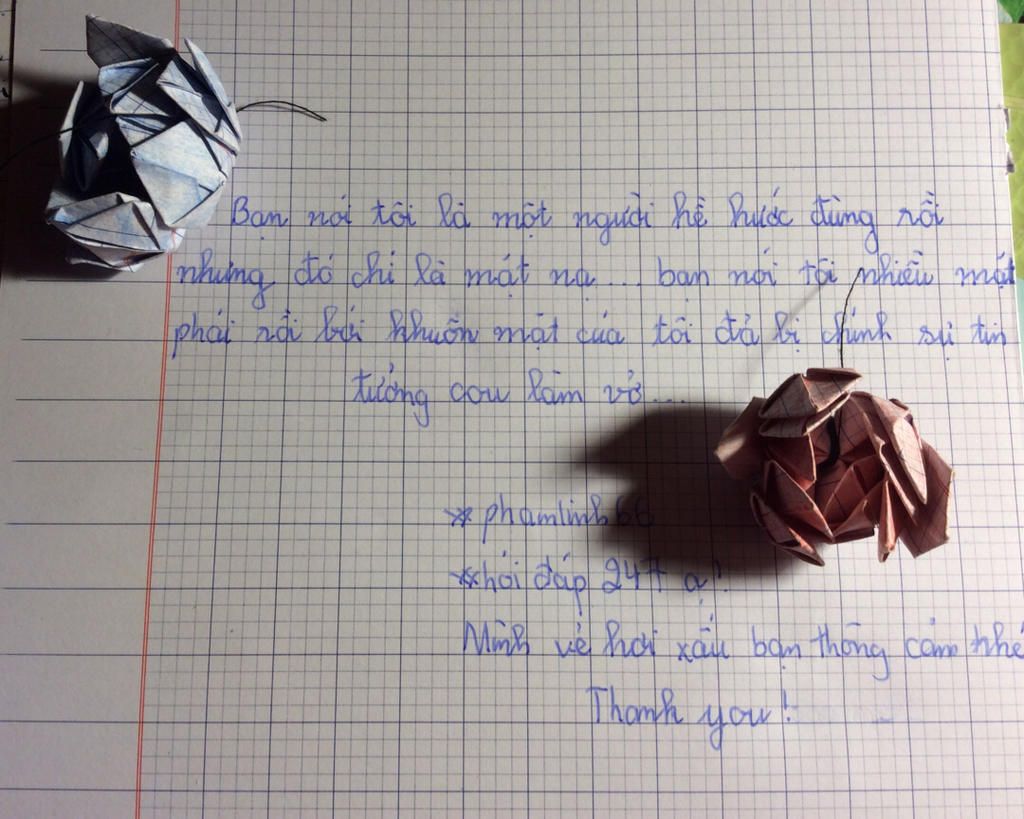 Bạn nói tôi là một người hề hước đúng rồi
nhưng đó chỉ là mặt nạ... bạn nói tôi nhiều mặt
phải rồi bởi khuôn mặt của tôi đã bị chính sự tin
tưởng cou làm vỡ...
* phamlinh66
* hỏi đáp 247 ạ!
Mình vẽ hơi xấu bạn thông cảm nhé
Thank you!